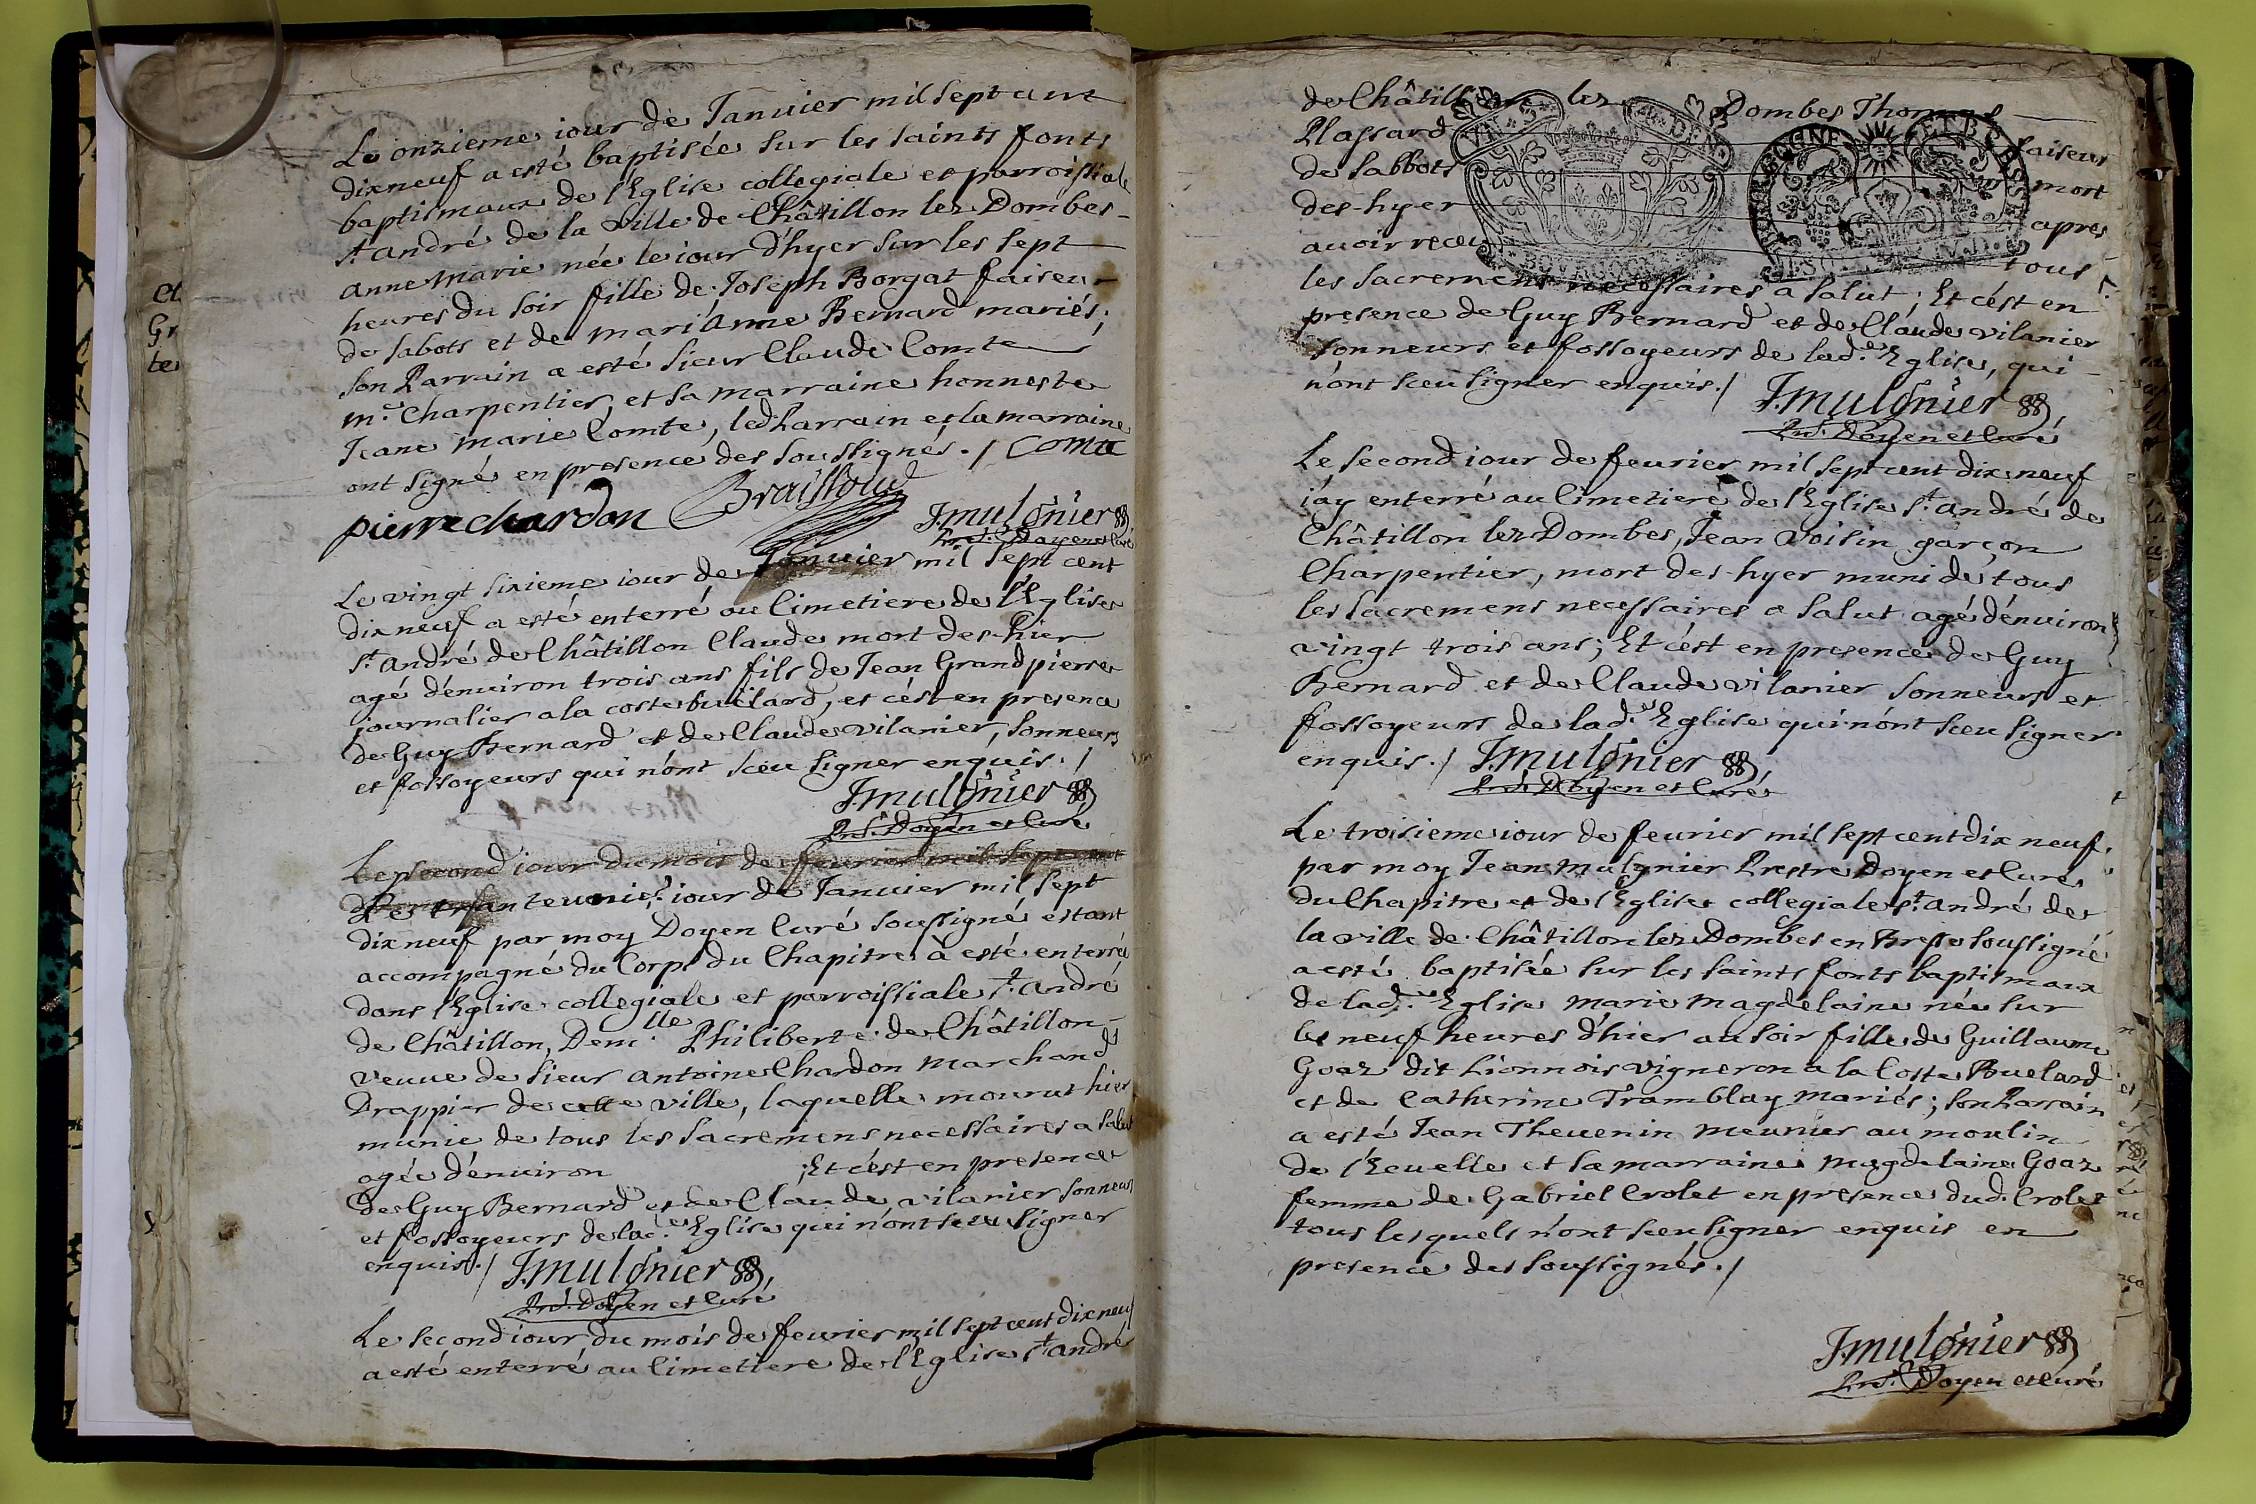 Le onzieme iour de Januier mil sept cent
dixneuf a esté baptisée sur les saints fonts
baptismaux de l'Eglise collegiale et parroissiale
st. andré de la Ville de Châtillon lez Dombes
anne Marie née le iour d'hyer sur les sept
heures du soir fille de Joseph Borgat faiseur
de sabots et de mariAnne Bernard mariés;
son Parrain a esté sieur Claude Comte
me. Charpentier, et sa marraine honneste
Jeane marie Comte, led Parrain et la marraine
ont signé en presence des soussignés ./ Comte
pierre chardon Braissoud J. mulgnier
Pré. Doyen et Curé
Le vingt sixieme iour de Januier mil sept cent
dixneuf a esté enterré au Cimetiere de l'Eglise
st. andré de Châtillon Claude mort des-hier
agé d'enuiron trois ans fils de Jean Grandpierre
journalier a la coste buëlard, et c'est en presence
de Guy Bernard et de Claude Vilanier, sonneurs
et fossoyeurs qui n'ont sceu signer enquis ./
J. mulgnier
Pré. Doyen et Curé
Le second iour du mois de feurier mil sept cent
Le trante unie. iour de Januier mil sept
dixneuf par moy Doyen Curé soussigné estant
accompagné du Corps du Chapitre à esté enterrée
dans l'Eglise collegiale et parroissiale st. andré
de Châtillon, Demlle. Philiberte de Châtillon
veuue de sieur antoine Chardon marchand
Drappier de cette ville, laquelle mourut hier
munie de tous les sacremens necessaires a salut
agée d'enuiron ; Et c'est en presence
de Guy Bernard et de Claude vilanier sonneurs
et fossoyeurs de lad. Eglise qui n'ont sceu signer
enquis ./ J. mulgnier
Pré. Doyen et Curé
Le second iour du mois de feurier mil sept cent dixneuf
a esté enterré au Cimetiere de l'Eglise st. andré
de Châtillon lez Dombes Thomas
Plassard faiseur
de sabbots mort
des-hyer apres
auoir receu tous
les sacremens necessaires a salut; Et c'est en
presence de Guy Bernard et de Claude vilanier
sonneurs et fossoyeurs de lad. Eglise, qui
n'ont sceu signer enquis ./ J. mulgnier
Pré. Doyen et Curé
Le second iour de feurier mil sept cent dix neuf
i'ay enterré au Cimetiere de l'Eglise st. andré de
Châtillon lez Dombes, Jean Voisin garçon
Charpentier, mort des-hyer muni de tous
les sacremens necessaires a salut agé d'enuiron
vingt trois ans; Et c'est en presence de Guy
Bernard et de Claude vilanier sonneurs et
fossoyeurs de lad. Eglise qui n'ont sceu signer
enquis ./ J. mulgnier
Pré. Doyen et Curé
Le troisieme iour de feurier mil sept cent dix neuf
par moy Jean mulgnier Prestre Doyen et Curé
du Chapitre et de l'Eglise collegiale st. andré de
la ville de Châtillon lez Dombes en Bresse soussigné
a esté baptisée sur les saints fonts baptismaux
de lad. Eglise marie magdelaine née sur
les neuf heures d'hier au soir fille de Guillaume
Goaz dit Lionnois vigneron a la Coste Buelard
et de Catherine Tramblay mariés; son Parrain
a esté Jean Theuenin meunier au moulin
de l'Ecuelle et sa marraine magdelaine Goaz
femme de Gabriel Crolet en presence dud. Crolet
tous lesquels n'ont sceu signer enquis en
presence des soussignés ./
J. mulgnier
Pré. Doyen et Curé